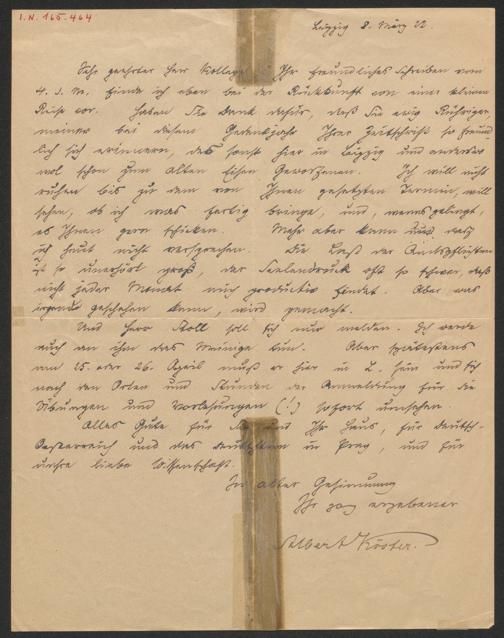 I.N. 165.464
Leipzig 8. März 22.
Sehr geehrter Herr Kollege! Ihr freundliches Schreiben vom
4. d. M. finde ich eben bei der Rückkunft von einer kleinen
Reise vor. Haben Sie Dank dafür, daß Sie ewig Rühriger
meiner bei diesem Gedenkjahr Ihrer Zeitschrift so freund
lich sich erinnern, des sonst hier in Leipzig und anderswo
wol schon zum alten Eisen Geworfenen. Ich will nicht
ruhen bis zu dem von Ihnen gesetzten Termin, will
sehen, ob ich was fertig bringe, und, wenns gelingt,
es Ihnen gern schicken. Mehr aber kann und darf
ich heut nicht versprechen. Die Last der Amtspflichten
ist so unerhört groß, der Seelendruck oft so schwer, daß
nicht jeder Monat mich productiv findet. Aber was
irgend geschehen kann, wird gemacht.
Und Herr Stoll soll sich nur melden. Ich werde
auch an ihm das Meinige tun. Aber spätestens
am 25. oder 26. April muß er hier in L. sein und sich
nach den Orten und Stunden der Anmeldung für die
Übungen und Vorlesungen (!) sofort umsehen.
Alles Gute für Sie und Ihr Haus, für Deutsch-
Oesterreich und das Deutschtum in Prag, und für
unsre liebe Wissenschaft.
In alter Gesinnung
Ihr ganz ergebener
Albert Köster.